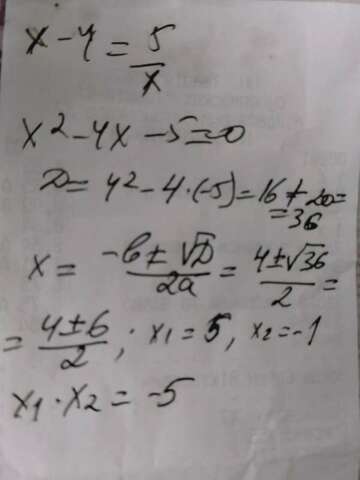 x - 4 = 5/x
x² - 4x - 5 = 0
D = 4² - 4·(-5) = 16 + 20 =
= 36
x = (-b ± √D)/2a = (4 ± √36)/2 =
= (4 ± 6)/2 ; x₁ = 5, x₂ = -1
x₁ · x₂ = -5